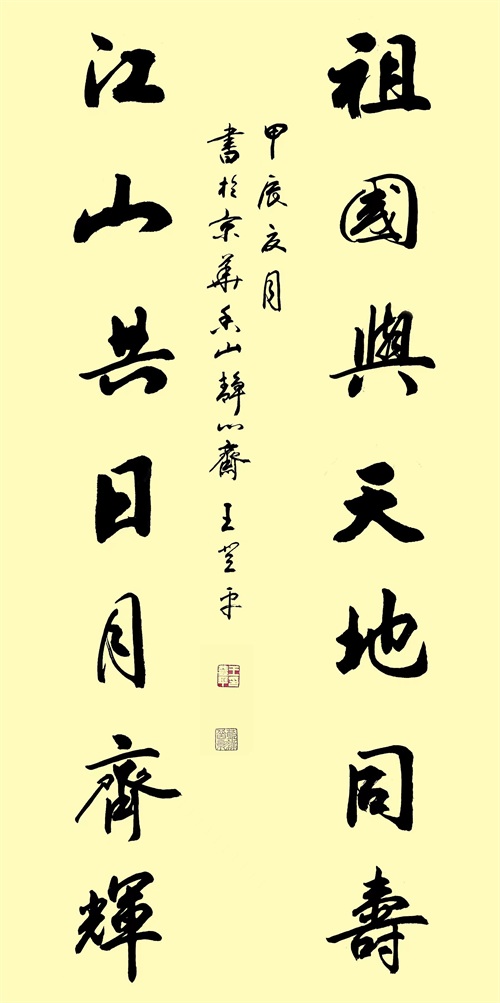 祖國與天地同壽
江山共日月齊輝
甲辰夏月
書於京華香山靜心齋 王登平